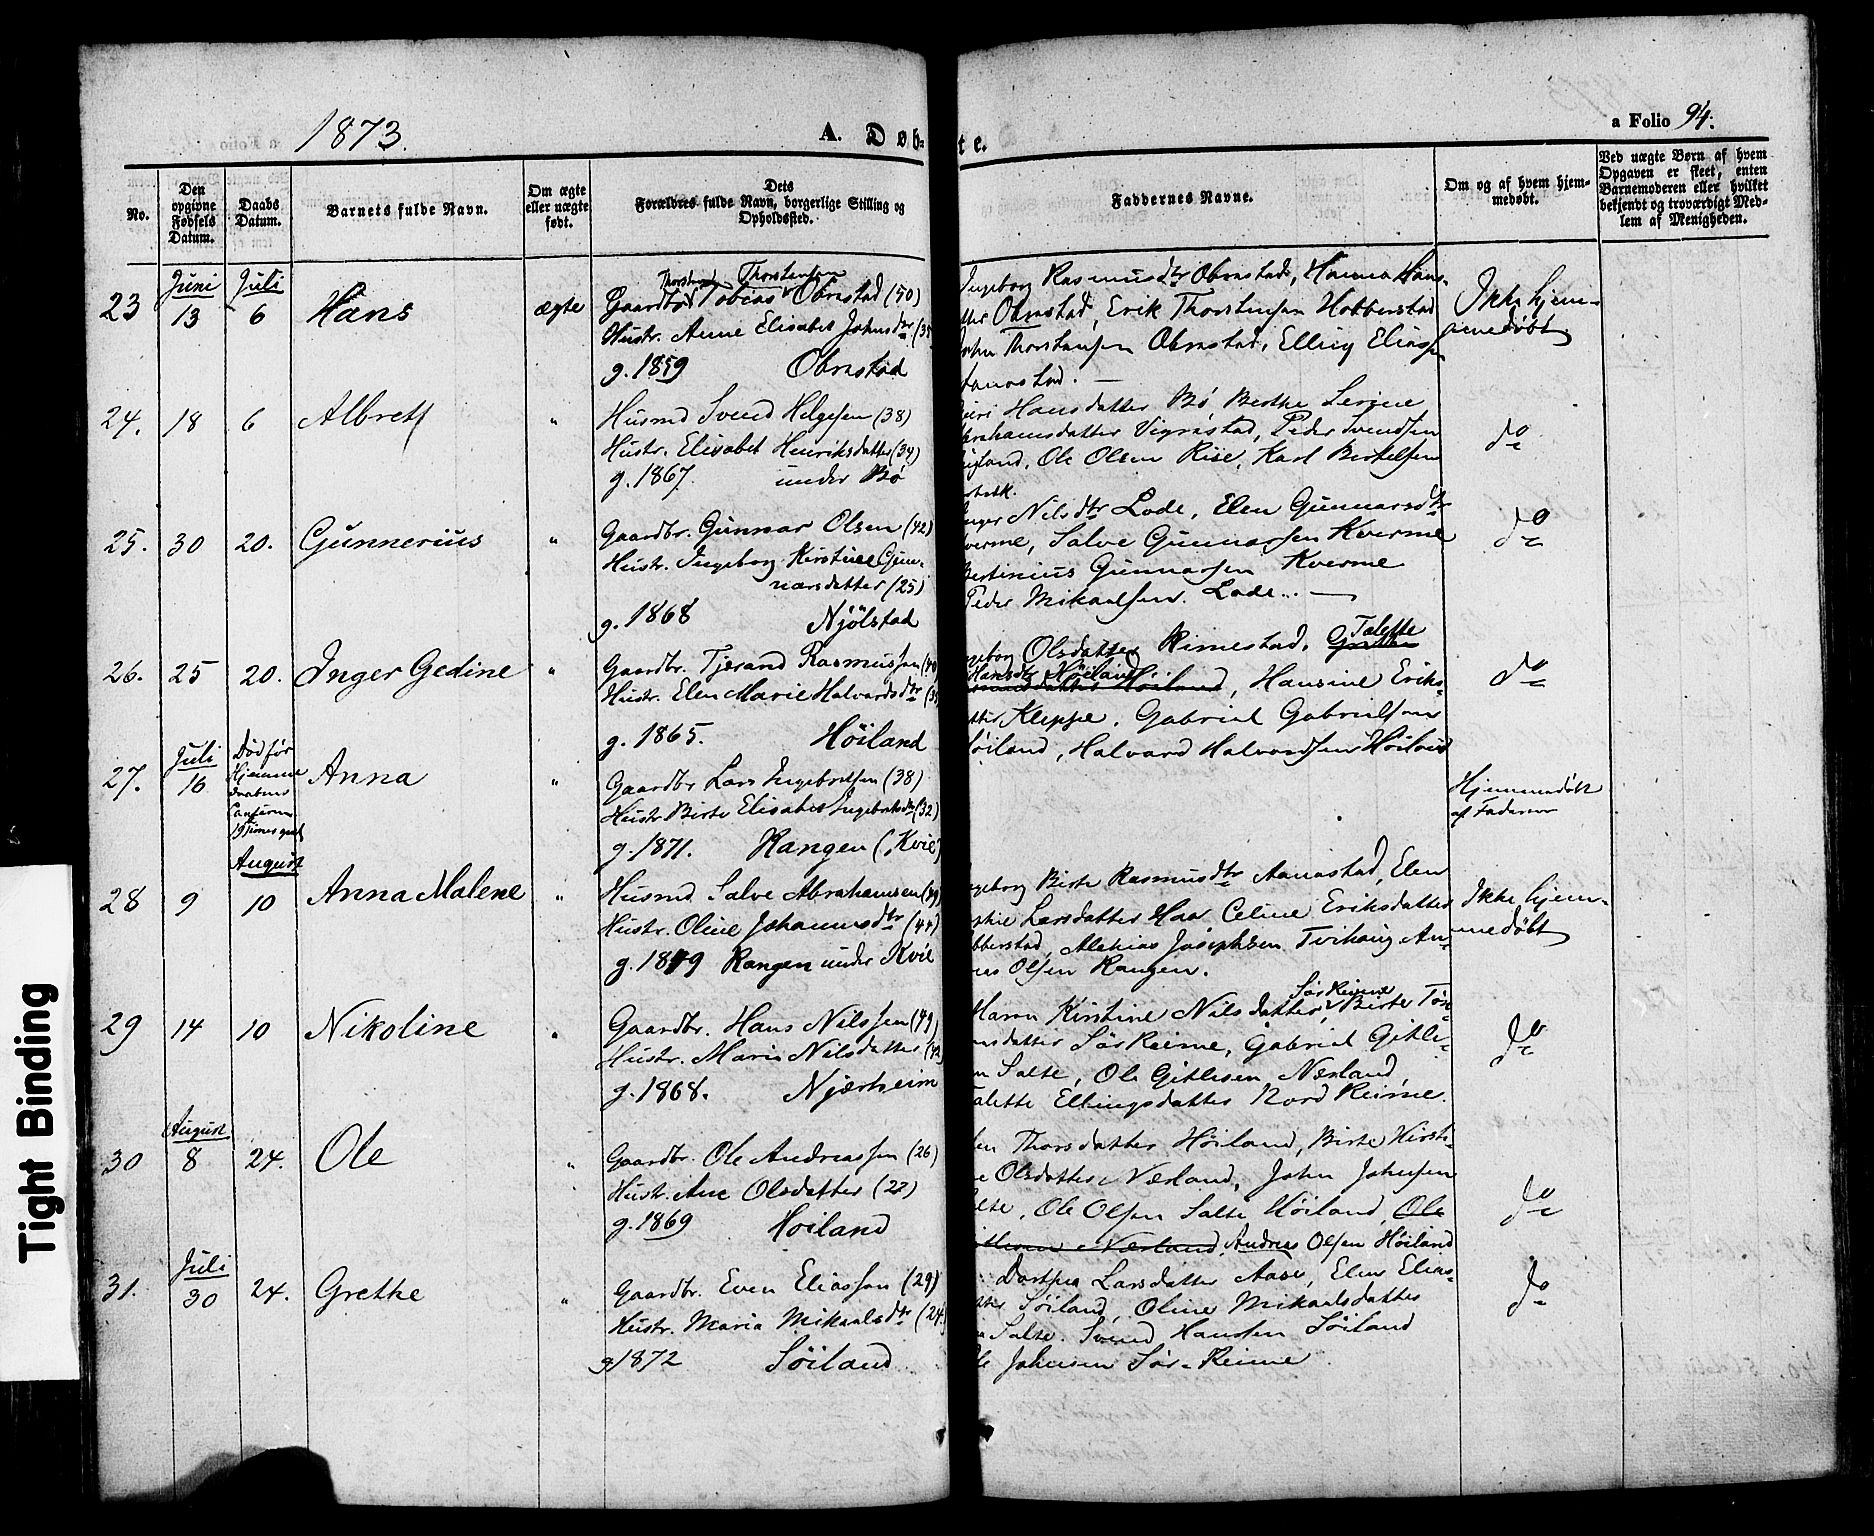 1873.
A. Døb-
te.
a Folio 94.
No.
Den opgivne Fødsels Datum.
Daabs Datum.
Barnets fulde Navn.
Om ægte eller uægte født.
Dets Forældres fulde Navn, borgerlige Stilling og Opholdssted.
Faddernes Navne.
Om og af hvem hjemmedøbt.
Ved uægte Børn af hvem Opgaven er skeet, enten Barnemoderen eller hvilket bekjendt og troværdigt Medlem af Menigheden.
Juni
Juli
23
13
6
Hans
ægte
Thorstensen
Gaardbr Tobias Obrestad (50)
Hustr. Anne Elisabet Johnsdtr
g. 1859 Obrestad
Ingeborg Rasmusdtr Obrestad, Hanna Hans-
Obrestad, Erik Thorstensen Hobberstad
Thorstensen Obrestad, Elling Elias
Ikke hjem-
medøbt
24.
18
6
Albrett
"
Husmd Svend Helgesen (38)
Hustr. Elisabet Henriksdatter (34)
g. 1867. under Bø
Hansdatter Bø Berthe Serine
Abrahamsdatter Vigrestad, Peder Svendsen
Ole Olsen Rise, Karl Bertelsen
do
25.
30
20.
Gunnerius
"
Gaardbr. Gunnar Olsen (42)
Hustr. Ingeborg Kirstine Gun-
narsdatter (25)
g. 1868 Njølstad
Inger Nilsdtr Lode, Elen Gunnarsdtr
Kverme, Salve Gunnarsen Kverme
Bertinius Gunnarsen Kverme
Peder Mikaelsen Lode.
do
26.
25
20.
Inger Gedine
"
Gaardbr. Tjerand Rasmussen
Hustr. Elen Marie Halvardsdtr
g. 1865. Høiland
Ingeborg Olsdatter Rimestad, Talette
Hansdtr Høiland
Høiland, Hansine Eriks-
Kleppe, Gabriel Gabrielsen
Høiland, Halvard Halvardsen Høiland
do
Juli
27.
16
Død før
Hjemme
daabens
19 Timer gml
Anna
"
Gaardbr Lars Ingebretsen (38)
Hustr Birte Elisabet Ingebretsdtr (32)
g. 1871. Hangen (Kvie)
Hjemmedøbt
af Faderen
August
28
9
10
Anna Malene
"
Husmd Salve Abrahamsen
Hustr. Oline Johannesdtr (44)
g. 1849 Rangen under Kvie
Ingeborg Birte Rasmusdtr Aanestad, Elen
Larsdatter Haar Celine Eriksdatter
Hobberstad, Josephsen Tvihaug An-
Olsen Rangen.
Ikke hjem-
medøbt
29
14
10
Nikoline
"
Gaardbr. Hans Nilssen (49)
Hustr. Maria Nilsdatter (42)
g. 1868. Njærheim
Sør Reime
Karen Kirstine Nilsdatter, Birte Tøn-
datter Sør Reime, Gabriel Gitle-
Salte, Ole Gitlesen Nærland,
Talette Ellingsdatter Nord Reime.
do
August
30
8
24.
Ole
"
Gaardbr. Ole Andreassen (26)
Hustr. Ane Olsdatter (22)
g. 1869 Høiland
Thorsdatter Høiland, Birte Kirsti-
ne Olsdatter Nærland, John Johnsen
Salte, Ole Olsen Salte Høiland, Ole
Nærland Andreas Olsen Høiland
do
Juli
31.
30
24.
Grethe
"
Gaardbr. Even Eliassen (29)
Hustr. Maria Mikaelsdtr (24)
g 1872 Søiland
Dorthea Larsdatter Aase, Elen Elias-
Søiland, Oline Mikaelsdatter
Salte. Svend Hansen Søiland
Johnsen Sør-Reime
do
Tight Binding